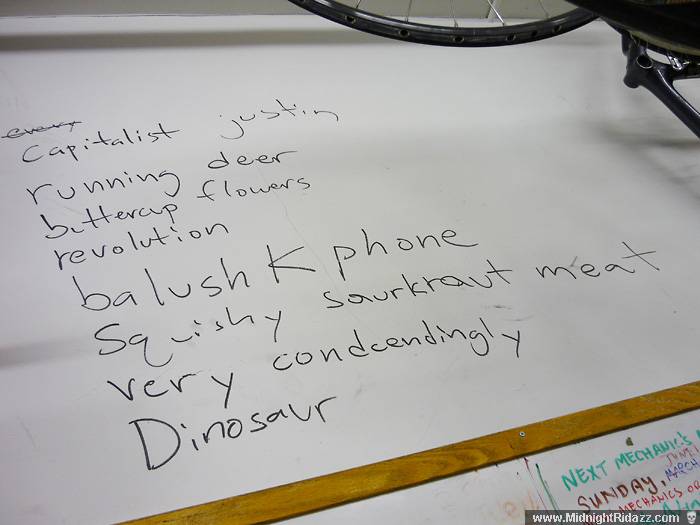 every
Capitalist justin
running deer
buttercup flowers
revolution
balushk phone
Squishy saurkraut meat
very condcendingly
Dinosaur
NEXT MECHANIC'S
SUNDAY,
MARCH
MECHANICS OR
www.MidnightRidazz.com